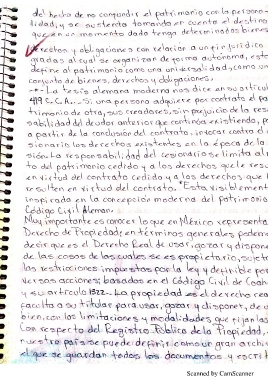 del hecho de no confundir el patrimonio con la persona-
lidad; y se sustenta tomando en cuenta el destino
que en un momento dado tenga determinados bienes
derechos y obligaciones con relación a un fin jurídico,
gracias al cual se organizan de forma autónoma, esta
define al patrimonio como una universalidad y como un
conjunto de bienes, derechos y obligaciones.
La tesis alemana moderna nos dice en su artícul
419 C.C.A. Si una persona adquiere por contrato el pa
trimonio de otra, sus creadores, sin perjuicio de la res
sabilidad del deudor anterior que continúa existiendo, p
a partir de la conclusión del contrato, invocar contra el
sionario los derechos existentes en la época de la
sión. La responsabilidad del cesionario se limita al
to del patrimonio cedido y a los derechos que le res
en virtud del contrato cedido y a los derechos que l
resulten en virtud del contrato. "Esta visiblement
inspirada en la concepción moderna del patrimonio
Código Civil Alemán.
Muy importante es conocer lo que en México representa
Derecho de Propiedad; en términos generales podem
decir que es el Derecho Real de usar, gozar y dispone
de las cosas de las cuales se es propietario, sujet
las restricciones impuestas por la ley y defendible por
versos acciones; basados en el Código Civil de Coah
y su artículo 1322. La propiedad es el derecho rea
faculta a su titular para usar, gozar y disponer, de u
bien, con las limitaciones y modalidades que fijan las
Con respecto del Registro Público de la Propiedad,
nuestro país se puede definir como un gran archi
el que se guardan todos los documentos y escrit
Scanned by CamScanner